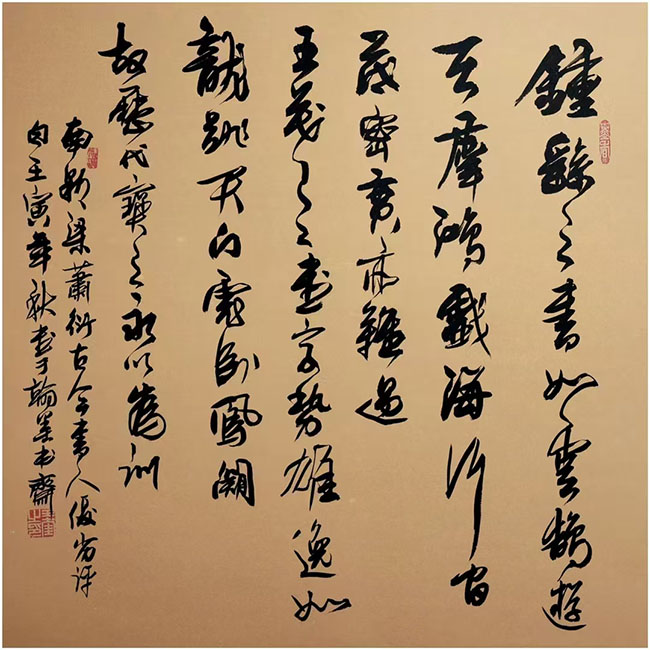 鍾繇之書如雲鵠遊
天羣鴻戲海行間
茂密實亦難過
王羲之書字勢雄逸如
龍跳天门虎臥鳳闕
故歷代寶之永以為訓
南朝梁蕭衍古今書人優劣评
句壬寅年秋書于翰墨书齋